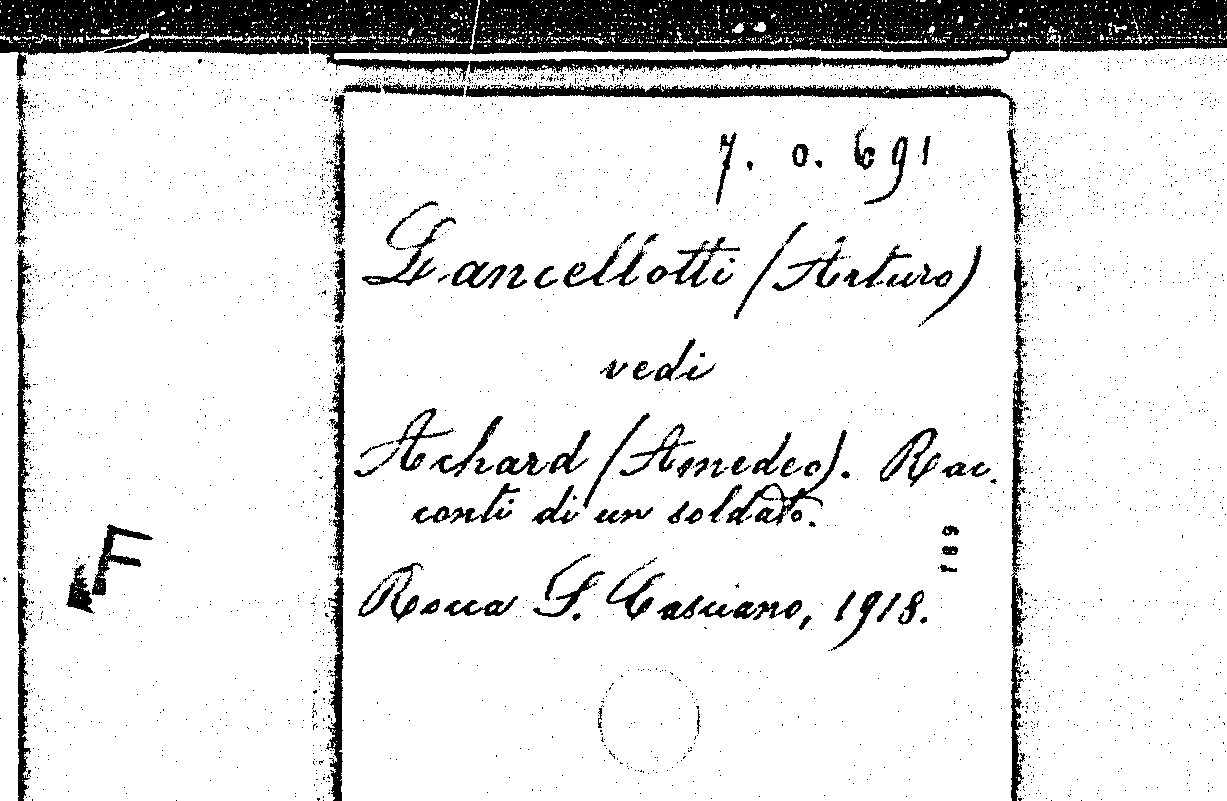 7. o. 691
Lancellotti (Arturo)
vedi
Achard (Amedeo). Rac.
conti di un soldato.
189
Rocca S. Casciano, 1918.
F